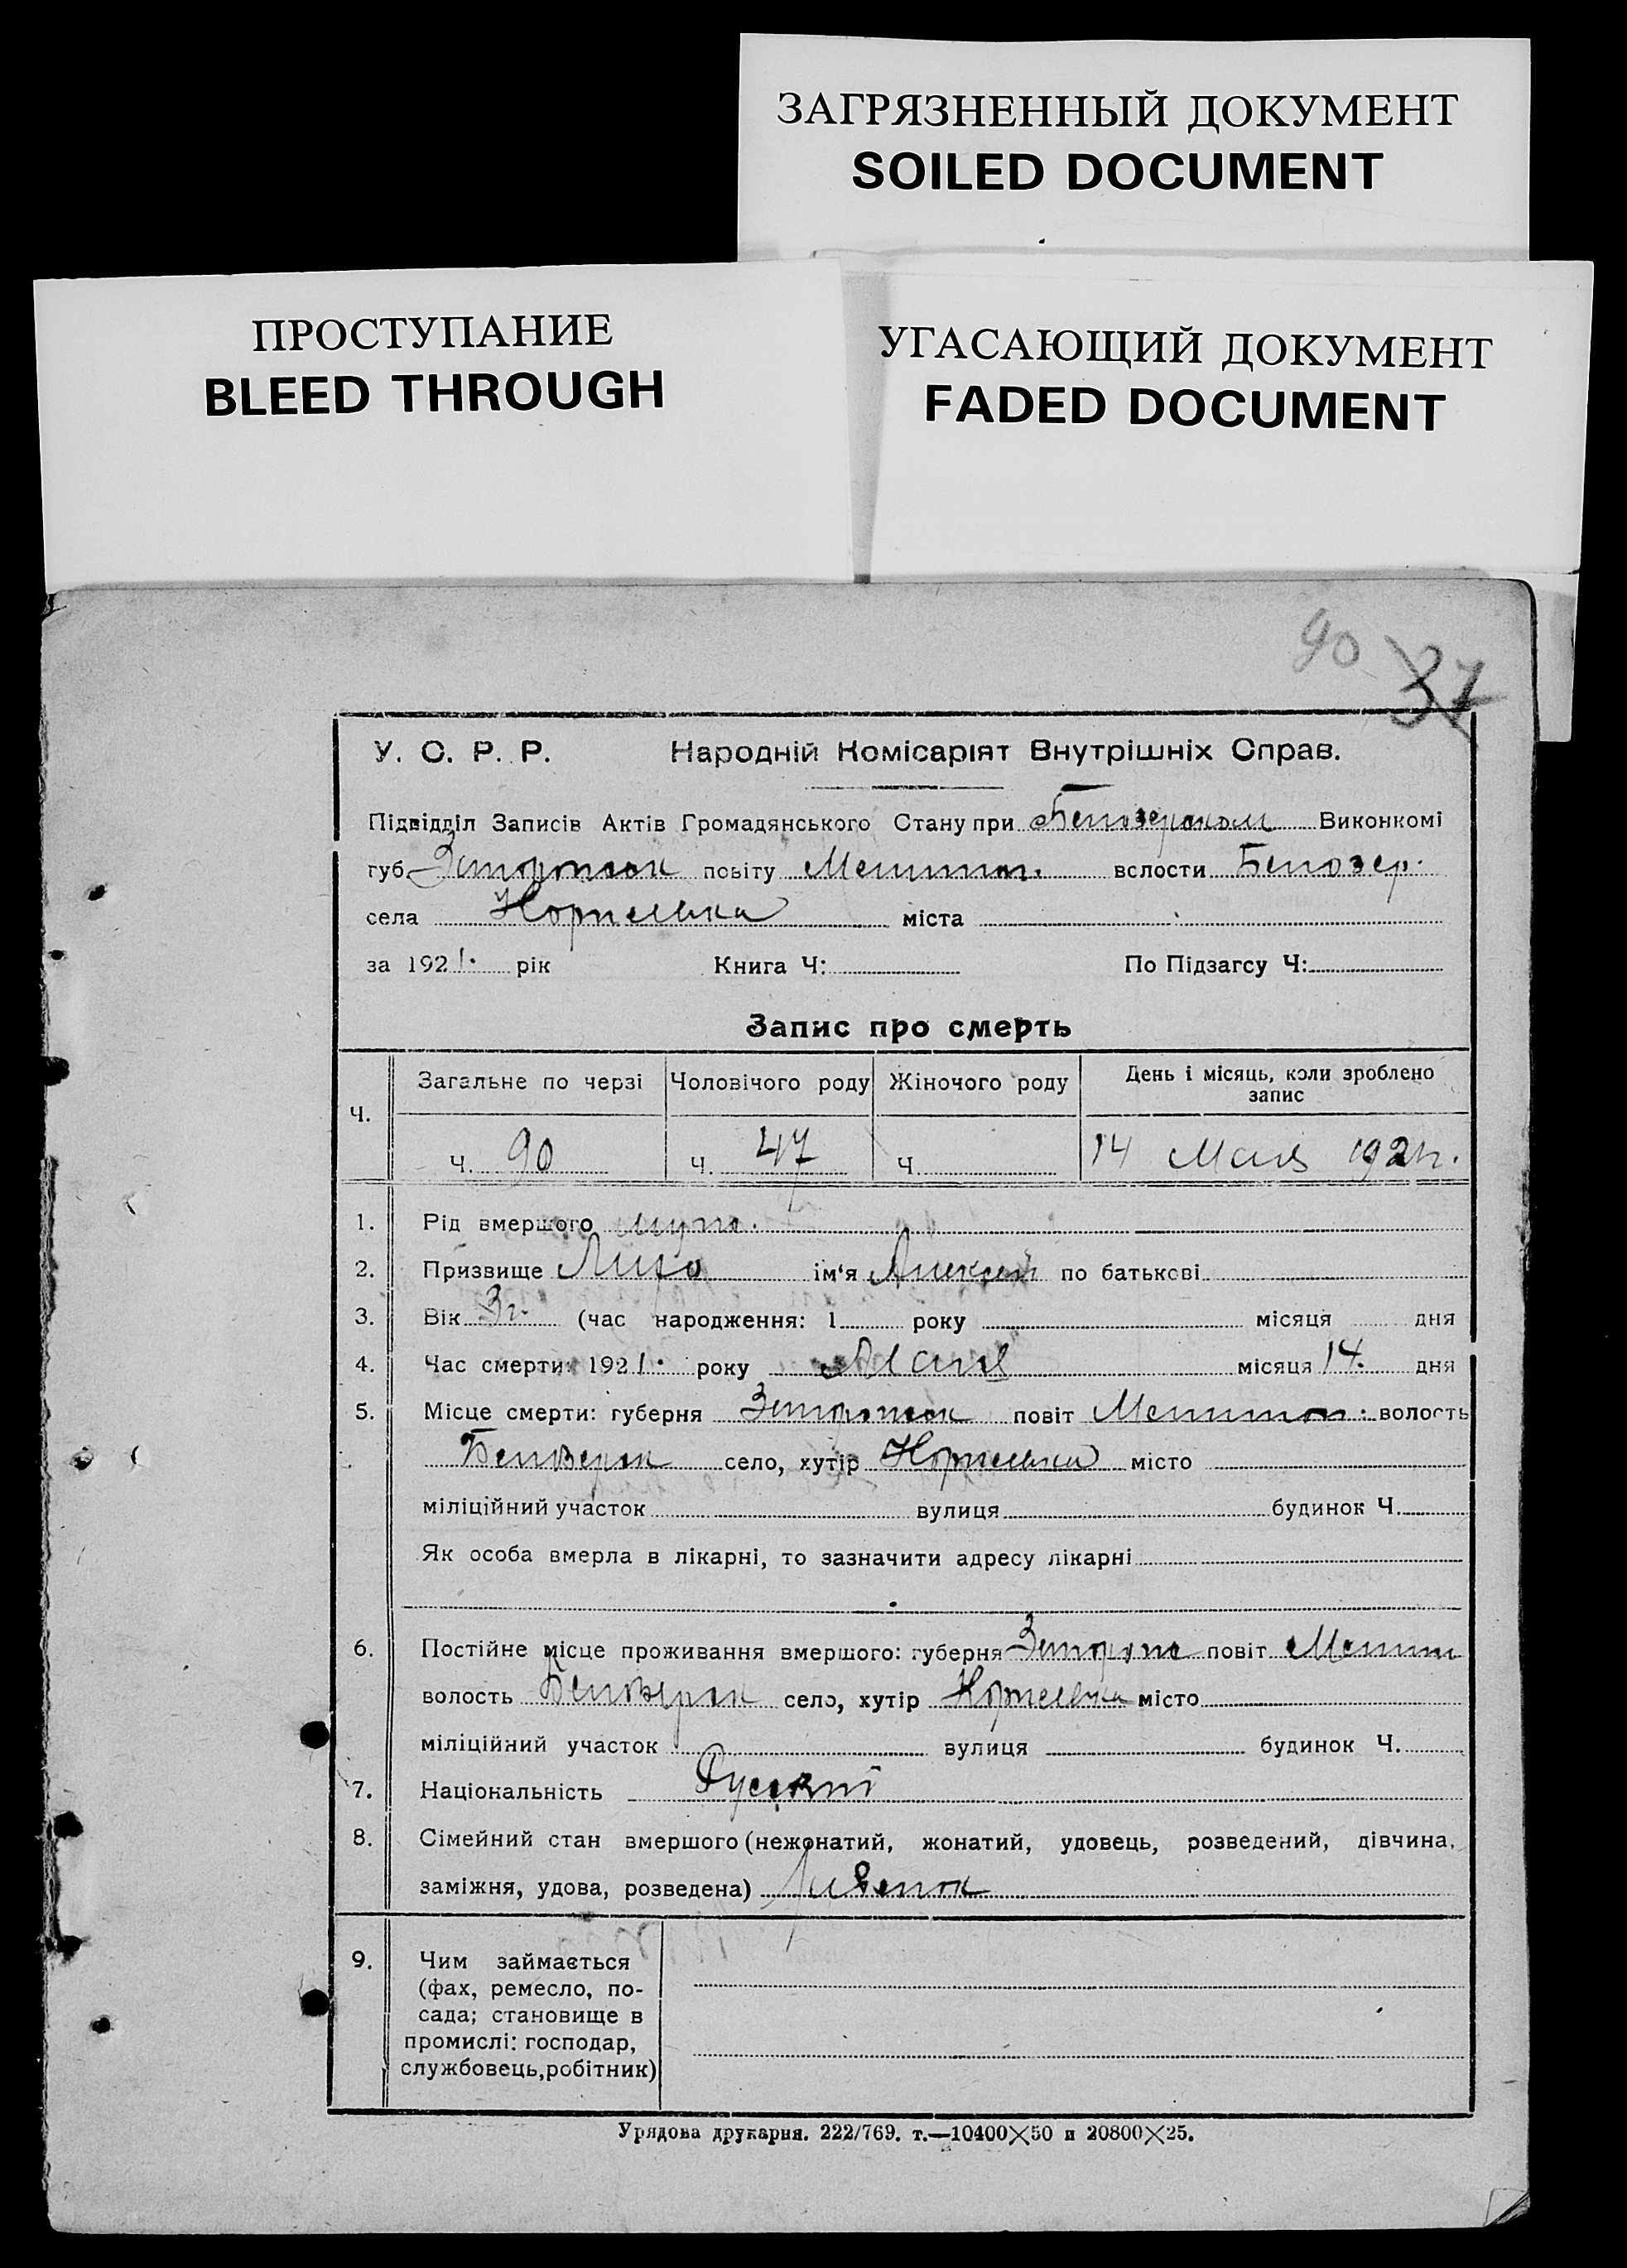 ЗАГРЯЗНЕННЫЙ ДОКУМЕНТ
SOILED DOCUMENT
ПРОСТУПАНИЕ
BLEED THROUGH
УГАСАЮЩИЙ ДОКУМЕНТ
FADED DOCUMENT
90 37
У. С. Р. Р. Народній Комісаріят Внутрішніх Справ.
Підвідділ Записів Актів Громадянського Стану при Белозерском Виконкомі
губ. Запорожск повіту Мелитоп. волости Белозер.
села Корнеевка міста
за 1921. рік Книга Ч: По Підзагсу Ч:
Запис про смерть
Ч. Загальне по черзі Чоловічого роду Жіночого роду День і місяць, коли зроблено запис
Ч. 90 Ч. 47 Ч. 14 Мая 1921 г.
1. Рід вмершого муж.
2. Призвище Лихо ім'я Алексей по батькові
3. Вік 3 г. (час народження: 1 року місяця дня
4. Час смерти: 1921. року Мая місяця 14. дня
5. Місце смерти: губерня Запорожск повіт Мелитоп. волость
Белозерск село, хутір Корнеевка місто
міліційний участок вулиця будинок Ч.
Як особа вмерла в лікарні, то зазначити адресу лікарні
6. Постійне місце проживання вмершого: губерня Запорож повіт Мелит
волость Белозерск село, хутір Корнеевка місто
міліційний участок вулиця будинок Ч.
7. Національність Русский
8. Сімейний стан вмершого (нежонатий, жонатий, удовець, розведений, дівчина,
заміжня, удова, розведена)
9. Чим займається
(фах, ремесло, по-
сада; становище в
промислі: господар,
службовець, робітник)
Урядова друкарня. 222/769. т.—10400×50 и 20800×25.